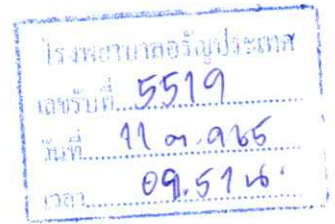 โรงพยาบาลอรัญประเทศ
เลขรับที่ 5519
วันที่ 11 ต.ค. 65
เวลา 09.51 น.